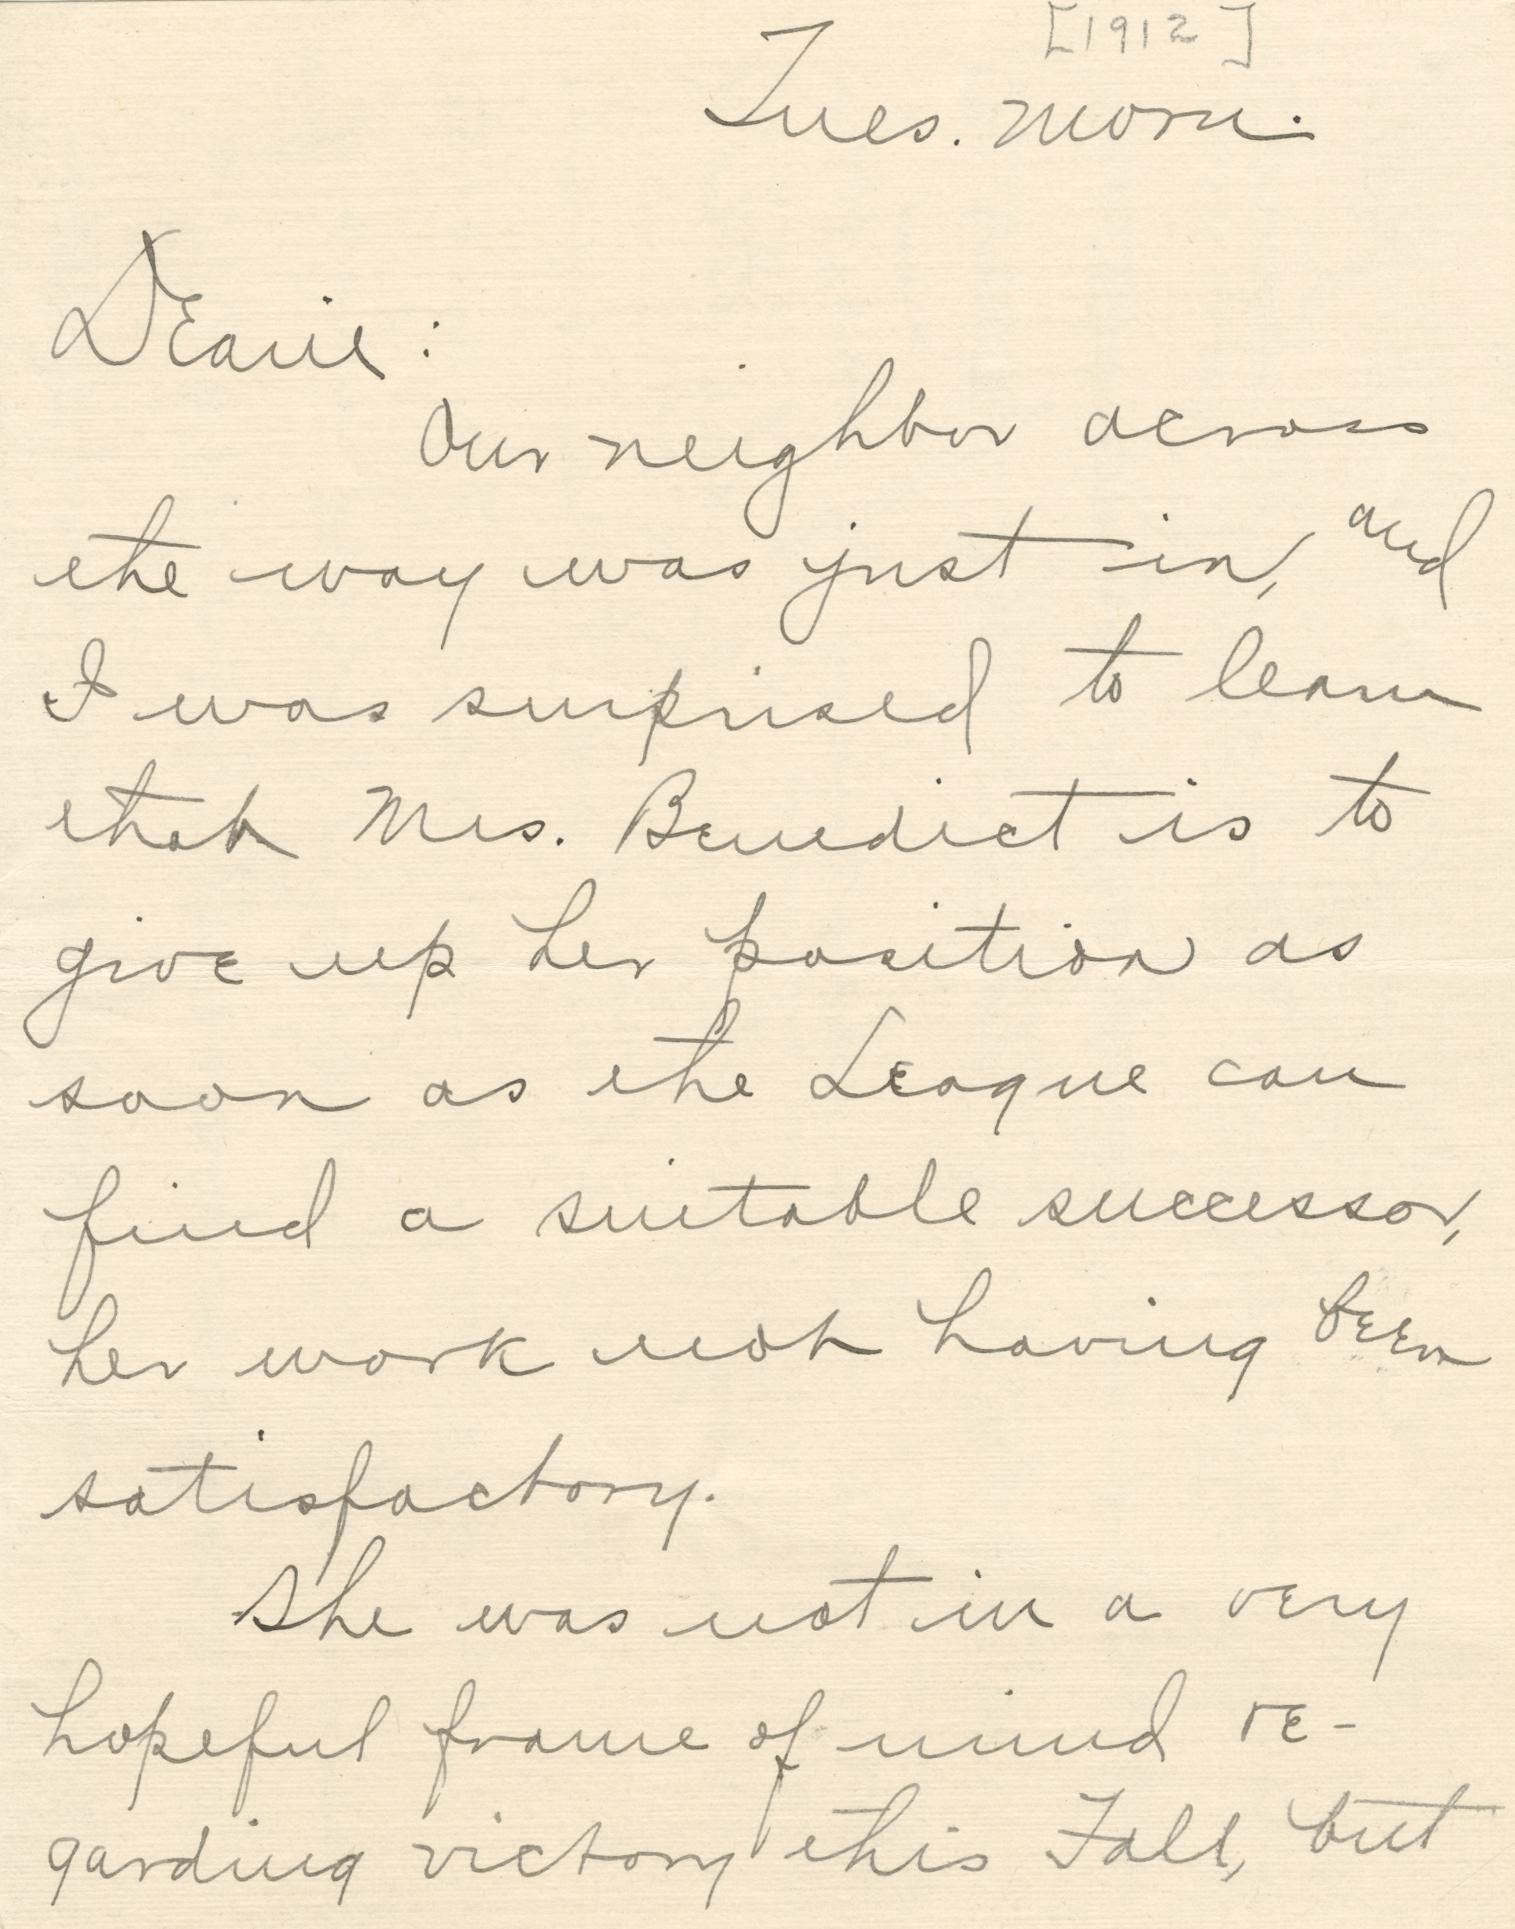 [1912]
Tues. Morn.
Dearie:
Our neighbor across
the way was just in, and
I was surprised to learn
that Mrs. Benedict is to
give up her position as
soon as the League can
find a suitable successor,
her work not having been
satisfactory.
She was not in a very
hopeful frame of mind re-
garding victory this Fall, but